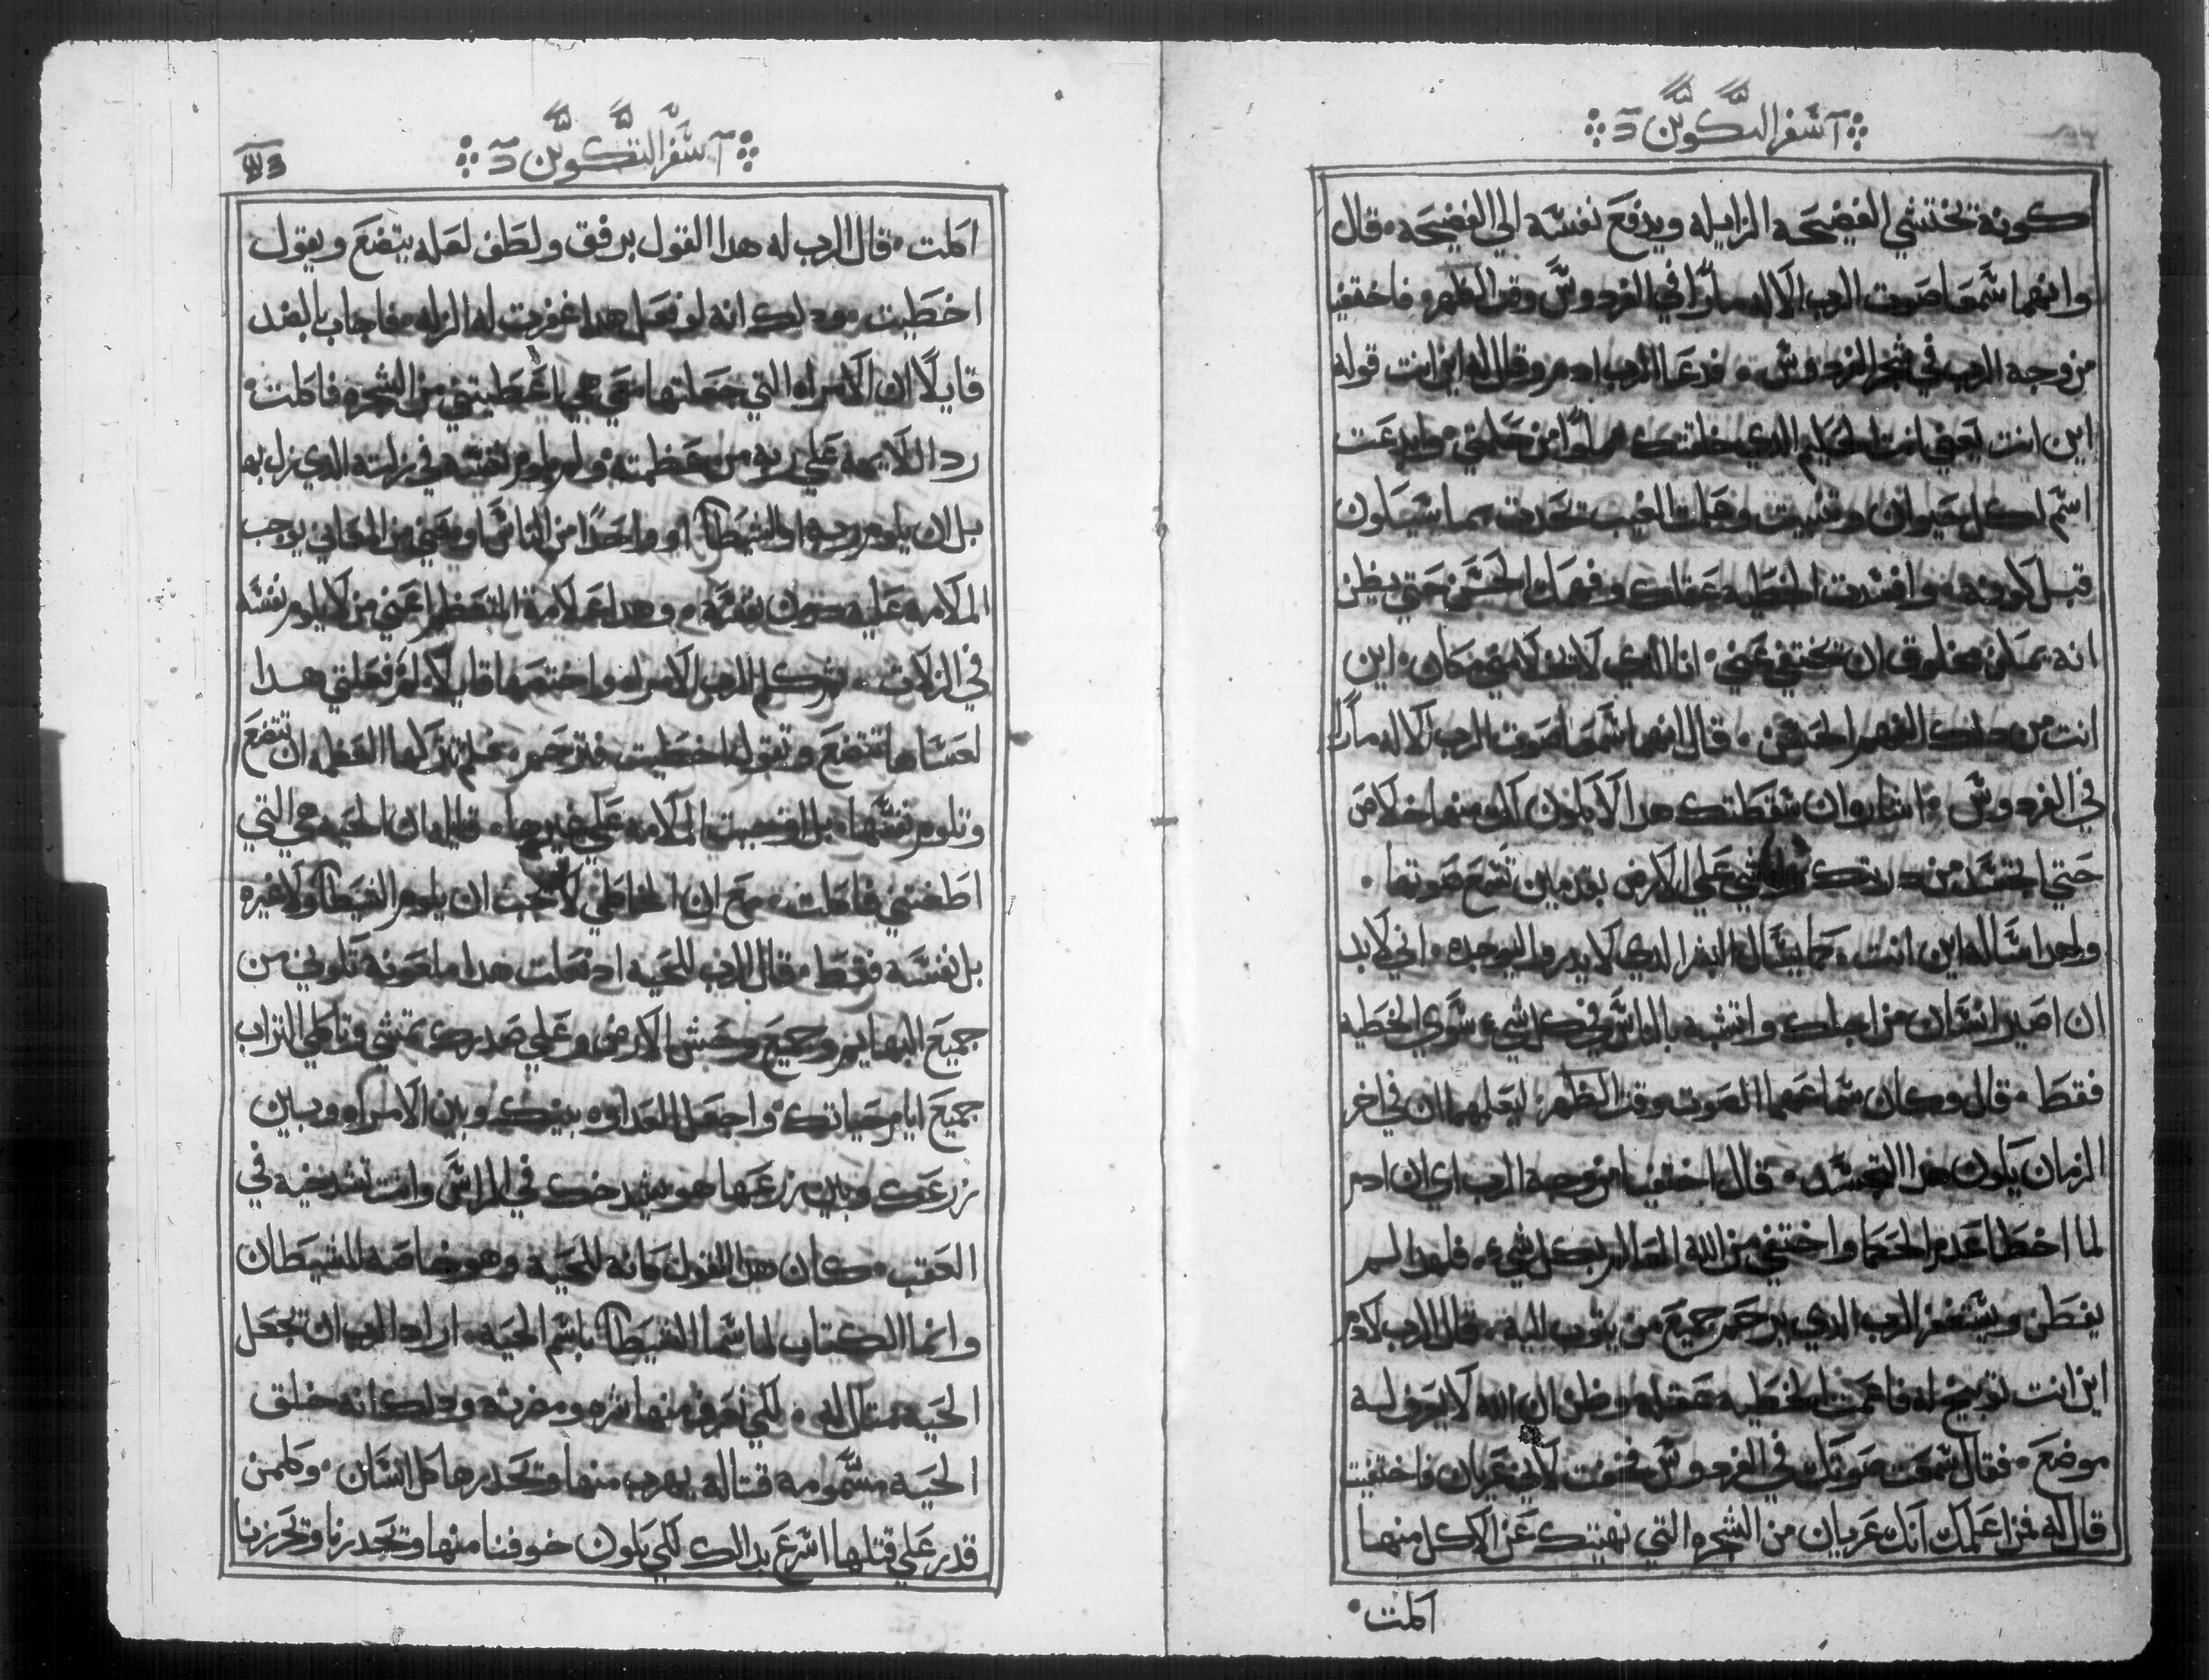 سفر التكوين
كونه تختشي الفضيحه الزايله ويدفع نفسه الي الفضيحه. قال
وانهما سمعا صوت الرب الاله مارًا في الفردوس وقت الظهر. فاختفيا
من وجه الرب في شجر الفردوس. فدعا الرب ادم وقال له اين انت قوله
اين انت يعني انت الحكيم الدي خلقتك مملوًا من حكمتي. وابدعت
اسم لكل حيوان وتنبيت وعلمت الغيب تحدت بما سيكون
قبل كونه. وافسدت الخطيه عقلك وفهمك الحسن حتي يظن
انه يمكن مخلوق ان يختفي عني. انا الدي لا يخلا مني مكان. اين
انت من دلك الفهم الحقيقي. قال انهما سمعا صوت الرب الاله مارًا
في الفردوس. اشاروا ان سقطتك هدا لا يكون لك منها خلاص
حتي اتجسد من دريتك وامشي علي الارض بقدمين تسمع صوتها.
ولهدا ساله اين انت. كما يسال البشر الدي لا يدروا ليوجده. اني لابد
ان اصير انسان من اجلك واتشبه بالناس في كل شيء سوي الخطيه
فقط. قال وكان سماعهما الصوت وقت الظهر. ليعلمهما ان في اخر
الزمان يكون هدا التجسد. قال اختفيا من وجه الرب اي ان ادم
لما اخطا عدم الحكما واختفي من الله العالم بكل شيء. فلهدا لم
يفطن ويستغفر الرب الدي يرحم جميع من يتوب اليه. قال الرب لادم
اين انت توبيخ له فاعمت الخطيه عقله وظن ان الله لا يعرف له
موضع. فقال سمعت صوتك في الفردوس فخفت لاني عريان فاختفيت
قال له فمن اعلمك انك عريان من الشجره التي نهيتك عن الاكل منها
اكلت.
سفر التكوين
اكلت. قال الرب له هدا القول برفق ولطف لعله يتضع ويقول
اخطيت. ودلك انه لو فعل هدا غفرت له الزله. فاجاب بالضد
قايلًا ان الامراه التي جعلتها معي هي اعطيتني من الشجره فاكلت.
رد اللايمه علي ربه من عظمته. ولم يلوم نفسه في زلته الدي زل به
بل ان يلوم ربه او الشيطان او واحدًا من الناس او معني من المعاني يوجب
الملامه عليه دون نفسه. وهدا علامة المتعظم اعني من لا يلوم نفسه
في الزلات. ثم كلم الرب الامراه واختصها قايلًا لم فعلتي هدا
لعساها تتضع وتقول اخطيت فترحم. فلم تركها العظمه ان تتضع
وتلوم نفسها. بل اوجبت الملامه علي غيرها. قايله ان الحيه هي التي
اطغتني فاكلت. مع ان الخاطي لا يجب ان يلوم الشيطان ولا غيره
بل نفسه فقط. قال الرب للحيه اد فعلت هدا ملعونه تكوني من
جميع البهايم وجميع وحش الارض وعلي صدرك تمشي وتاكلي التراب
جميع ايام حياتك. واجعل العداوه بينك وبين الامراه وبين
زرعك وبين زرعها هو يشدخك في الراس وانت تشدخيه في
العقب. كان هدا القول كانه للحيه وهو خاصه للشيطان
وانما الكتاب لما سما الشيطان باسم الحيه. اراد الرب ان تجعل
الحيه متال له. لكي نعرف منها شره ومضرته ودلك انه خلق
الحيه مسمومه قتاله يهرب منها وتحدرها كل انسان. وكلمن
قدر علي قتلها اسرع بدالك لكي يكون خوفنا منها وتحدرنا وتحرزنا